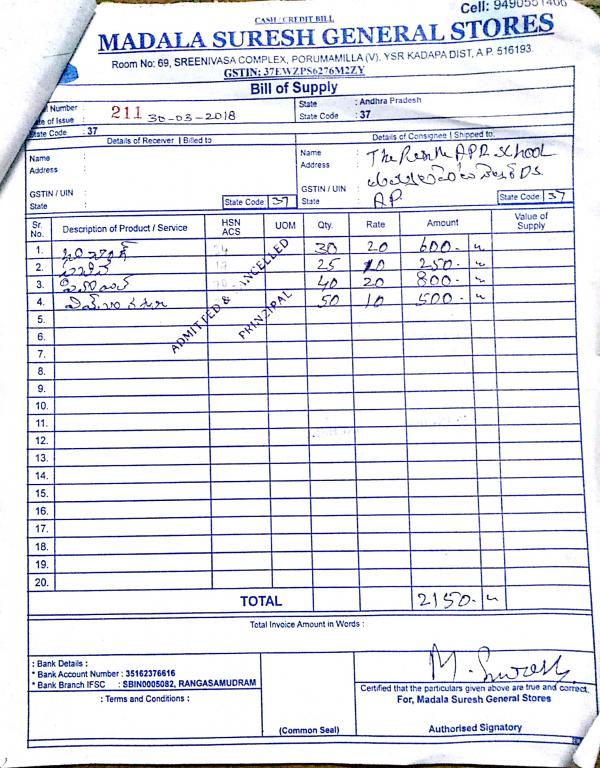 Cell: 9490551466
CASH / CREDIT BILL
MADALA SURESH GENERAL STORES
Room No: 69, SREENIVASA COMPLEX, PORUMAMILLA (V). YSR KADAPA DIST, A.P. 516193.
GSTIN: 37EWZPS6276M2ZY
Bill of Supply
Number : 211
of Issue : 30-03-2018
State Code : 37
State : Andhra Pradesh
State Code : 37
Details of Receiver | Billed to
Details of Consignee | Shipped to.
Name :
Address
GSTIN / UIN :
State : State Code 37
Name : The APR School
Address
GSTIN / UIN :
State : A.P. State Code 37
Sr. No. Description of Product / Service HSN ACS UOM Qty. Rate Amount Value of Supply
1. 30 20 600-
2. 25 10 250-
3. 40 20 800-
4. 50 10 500-
ADMITTED & CANCELLED
PRINCIPAL
5.
6.
7.
8.
9.
10.
11.
12.
13.
14.
15.
16.
17.
18.
19.
20.
TOTAL 2150-
Total Invoice Amount in Words :
: Bank Details :
* Bank Account Number : 35162376616
* Bank Branch IFSC : SBIN0005082, RANGASAMUDRAM
: Terms and Conditions :
(Common Seal)
M. Suresh
Certified that the particulars given above are true and correct.
For, Madala Suresh General Stores
Authorised Signatory